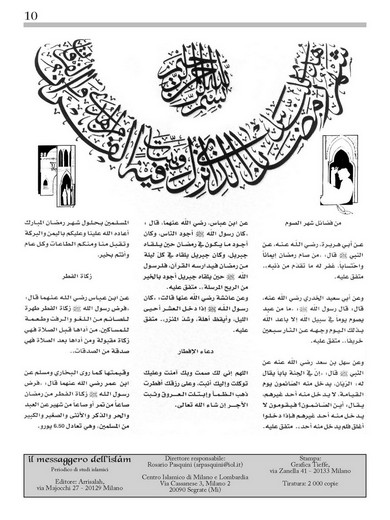 10
بسم الله الرحمن الرحيم
شهر رمضان الذي أنزل فيه القرآن
من فضائل شهر الصوم
عن أبي هريرة، رضي الله عنه، عن
النبي ﷺ قال: «من صام رمضان إيمانا
واحتسابا، غفر له ما تقدم من ذنبه»..
متفق عليه.
وعن أبي سعيد الخدري رضي الله عنه،
قال، قال رسول الله ﷺ: «ما من عبد
يصوم يوما في سبيل الله إلا باعد الله
بذلك اليوم وجهه عن النار سبعين
خريفا».. متفق عليه.
وعن سهل بن سعد رضي الله عنه عن
النبي ﷺ قال: «إن في الجنة بابا يقال
له، الريان، يدخل منه الصائمون يوم
القيامة، لا يدخل منه أحد غيرهم،
يقال: أين الصائمون؟ فيقومون لا
يدخل منه أحد غيرهم فإذا دخلوا
أغلق فلم يدخل منه أحد».. متفق عليه.
عن ابن عباس، رضي الله عنهما، قال:
«كان رسول الله ﷺ أجود الناس، وكان
أجود ما يكون في رمضان حين يلقاه
جبريل، وكان جبريل يلقاه في كل ليلة
من رمضان فيدارسه القرآن، فلرسول
الله ﷺ حين يلقاه جبريل أجود بالخير
من الريح المرسلة».. متفق عليه.
وعن عائشة رضي الله عنها قالت: «كان
رسول الله ﷺ إذا دخل العشر أحيى
الليل، وأيقظ أهله، وشد المئزر».. متفق
عليه.
دعاء الإفطار
اللهم إني لك صمت وبك آمنت وعليك
توكلت وإليك أنبت، وعلى رزقك أفطرت
ذهب الظمأ وابتلت العروق وثبت
الأجر إن شاء الله تعالى.
المسلمين بحلول شهر رمضان المبارك
أعاده الله علينا وعليكم باليمن والبركة
وتقبل منا ومنكم الطاعات وكل عام
وأنتم بخير.
زكاة الفطر
عن ابن عباس رضي الله عنهما قال:
«فرض رسول الله ﷺ زكاة الفطر طهرة
للصائم من اللغو والرفث وطعمة
للمساكين، من أداها قبل الصلاة فهي
زكاة مقبولة ومن أداها بعد الصلاة فهي
صدقة من الصدقات».
وقيمتها كما روى البخاري ومسلم عن
ابن عمر رضي الله عنهما قال: «فرض
رسول الله ﷺ زكاة الفطر من رمضان
صاعا من تمر أو صاعا من شعير عن العبد
والحر والذكر والأنثى والصغير والكبير
من المسلمين، وهي تعادل 6.50 يورو.
il messaggero dell'islâm
Periodico di studi islamici
Editore: Arrisalah,
via Majocchi 27 - 20129 Milano
Direttore responsabile:
Rosario Pasquini (arpasquini@tol.it)
Centro Islamico di Milano e Lombardia
Via Cassanese 3, Milano 2
20090 Segrate (Mi)
Stampa:
Grafica Tieffe,
via Zanella 41 - 20133 Milano
Tiratura: 2 000 copie